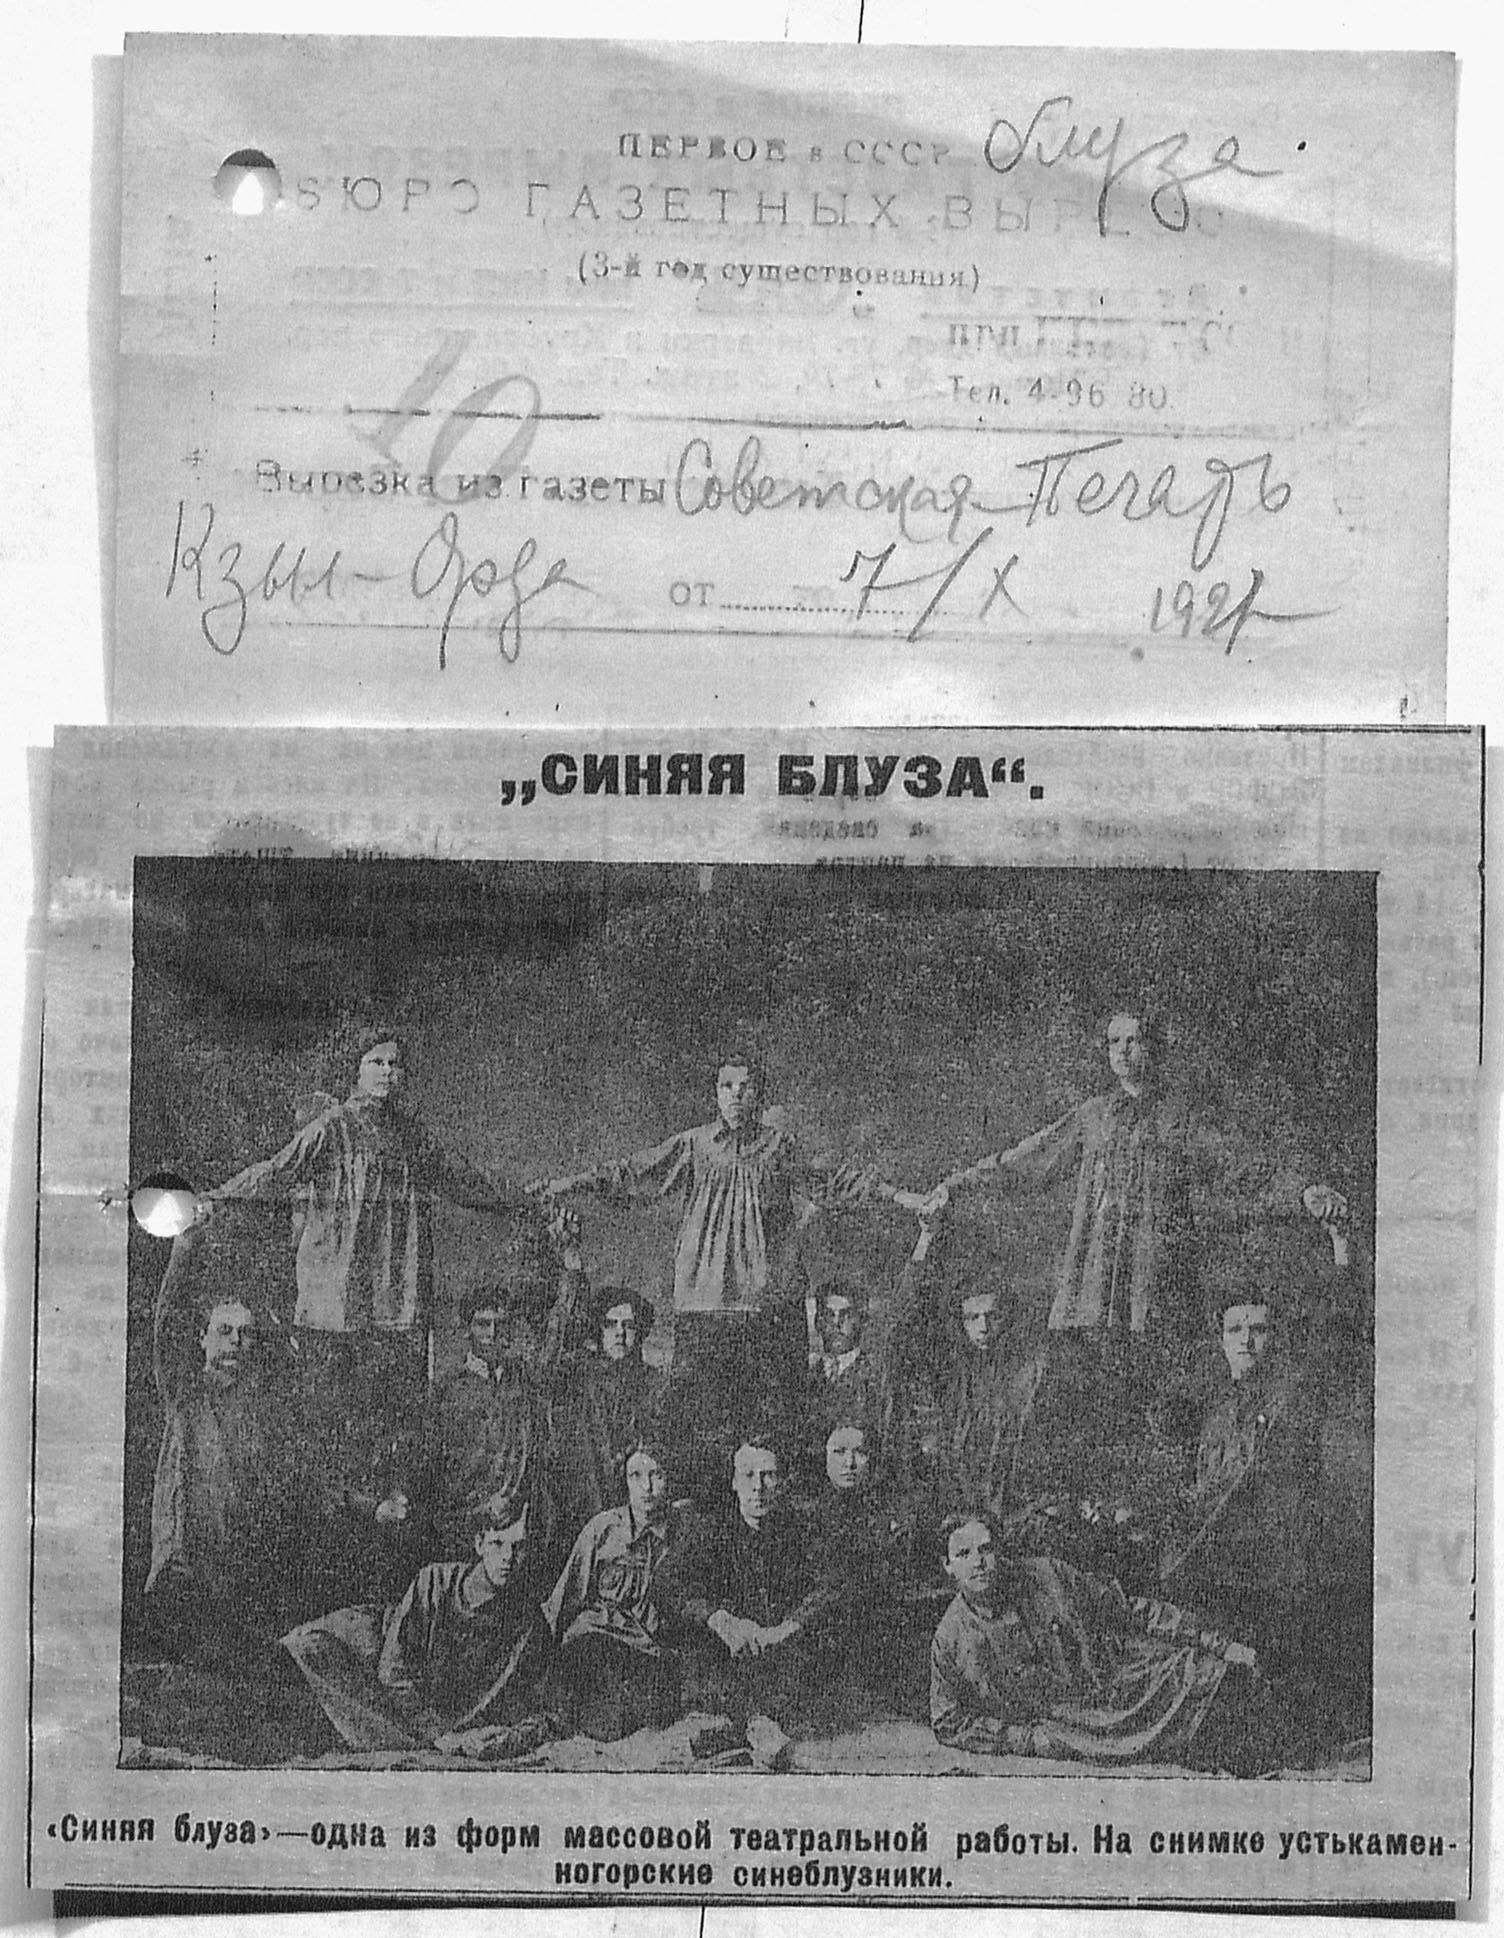 блуза
ПЕРВОЕ в СССР
БЮРО ГАЗЕТНЫХ
(3-й год существования)
Тел. 4-96 80
10
Вырезка из газеты Советская Печать
Кзыл-Орда от 7/X 1927
„СИНЯЯ БЛУЗА“.
«Синяя блуза»—одна из форм массовой театральной работы. На снимке устькамен-
ногорские синеблузники.